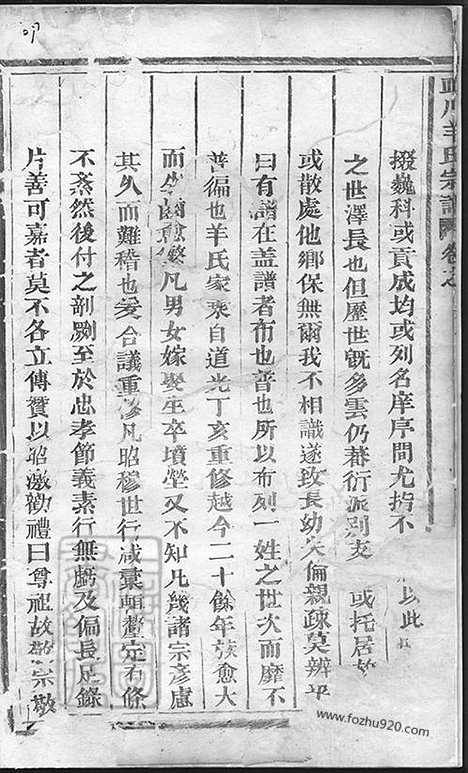 川羊氏宗譜 卷之
掇巍科或貢成均或列名庠序間尤指不 以此
之世澤長也但歷世旣多雲仍蕃衍派別支 或托居
或散處他鄉保無爾我不相識遂致長幼失倫親疎莫辨乎
曰有譜在盖譜者布也普也所以布列一姓之世次而靡不
善徧也羊氏家乘自道光丁亥重修越今二十餘年族愈大
而生齒愈繁凡男女嫁娶生卒墳塋又不知凡幾諸宗彥慮
其久而難稽也爰合議重修凡昭穆世行咸彙輯釐定有條
不紊然後付之剞劂至於忠孝節義素行無虧及偏長足錄
片善可嘉者莫不各立傳贊以昭激勸禮曰尊祖故敬宗敬
www.fozhu920.com